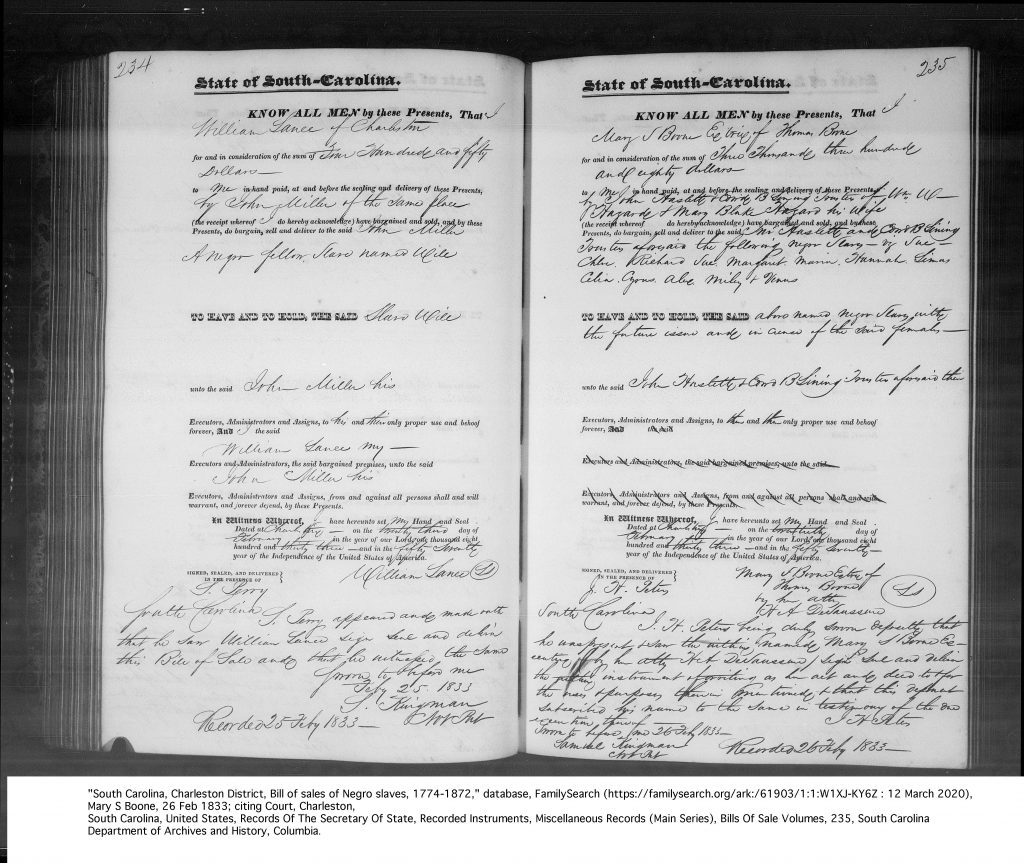 234
State of South-Carolina.
KNOW ALL MEN by these Presents, That I
William Lance of Charleston
for and in consideration of the sum of Four Hundred and fifty
Dollars—
to me in hand paid, at and before the sealing and delivery of these Presents,
by John Miller of the same place
(the receipt whereof I do hereby acknowledge) have bargained and sold, and by these
Presents, do bargain, sell and deliver to the said John Miller
A negro fellow Slave named
TO HAVE AND TO HOLD, THE SAID Slave
unto the said John Miller his
Executors, Administrators and Assigns, to his and their only proper use and behoof
forever, And I the said
William Lance my—
Executors and Administrators, the said bargained premises, unto the said
John Miller his
Executors, Administrators and Assigns, from and against all persons shall and will
warrant, and forever defend, by these Presents.
In Witness Whereof, I have hereunto set My Hand and Seal
Dated at Charleston on the twenty third day of
February in the year of our Lord, one thousand eight
hundred and thirty three—and in the fifty seventh
year of the Independence of the United States of America.
SIGNED, SEALED, AND DELIVERED
IN THE PRESENCE OF
William Lance LS
S. Perry
South Carolina S. Perry appeared and made oath
that he saw William Lance sign seal and deliver
this Bill of Sale and that he witnessed the same
Sworn to before me
Feby 25 1833
S. Kingman
Not Pub
Recorded 25 Feby 1833—
235
State of South-Carolina.
KNOW ALL MEN by these Presents, That I
Mary S Boone Extrix of Thomas Boone
for and in consideration of the sum of Three Thousand three hundred
and eighty dollars
to me in hand paid, at and before the sealing and delivery of these Presents,
by John Haslett & Edwd B Lining Trustees of Wm
Hazard & Mary Blake Hazard his wife
(the receipt whereof do hereby acknowledge) have bargained and sold, and by these
Presents, do bargain, sell and deliver to the said Jno Haslett and Edwd B Lining
Trustees aforesaid the following negro Slaves—
Chloe Richard Sue Margaret Maria Hannah Limus
Celia Cyrus Alex & Venus
TO HAVE AND TO HOLD, THE SAID above named negro Slaves, with
the future issue and increase of the said females—
unto the said John Haslett & Edwd B Lining Trustees aforesaid their
Executors, Administrators and Assigns, to them and their only proper use and behoof
forever, And the said
Executors and Administrators, the said bargained premises, unto the said
Executors, Administrators and Assigns, from and against all persons shall and will
warrant, and forever defend, by these Presents.
In Witness Whereof, I have hereunto set My Hand and Seal
Dated at Charleston—on the twentieth day of
February in the year of our Lord, one thousand eight
hundred and thirty three—and in the fifty seventh—
year of the Independence of the United States of America.
SIGNED, SEALED, AND DELIVERED
IN THE PRESENCE OF
J. H. Peters
Mary S Boone Extrix of
Thomas Boone
by her atty
H A DeSaussure
LS
South Carolina
J. H. Peters being duly sworn deposeth that
he was present & saw the within named Mary S Boone
by her atty H A DeSaussure, sign seal and deliver
the instrument of writing as her act and deed & for
the uses & purposes therein mentioned, & that this deponent
subscribed his name to the same in testimony of the due
execution thereof
J H Peters
Sworn to before me 26 Feby 1833—
Samuel Kingman
Not Pub
Recorded 26 Feby 1833—
"South Carolina, Charleston District, Bill of sales of Negro slaves, 1774-1872," database, FamilySearch (https://familysearch.org/ark:/61903/1:1:W1XJ-KY6Z : 12 March 2020),
Mary S Boone, 26 Feb 1833; citing Court, Charleston,
South Carolina, United States, Records Of The Secretary Of State, Recorded Instruments, Miscellaneous Records (Main Series), Bills Of Sale Volumes, 235, South Carolina
Department of Archives and History, Columbia.